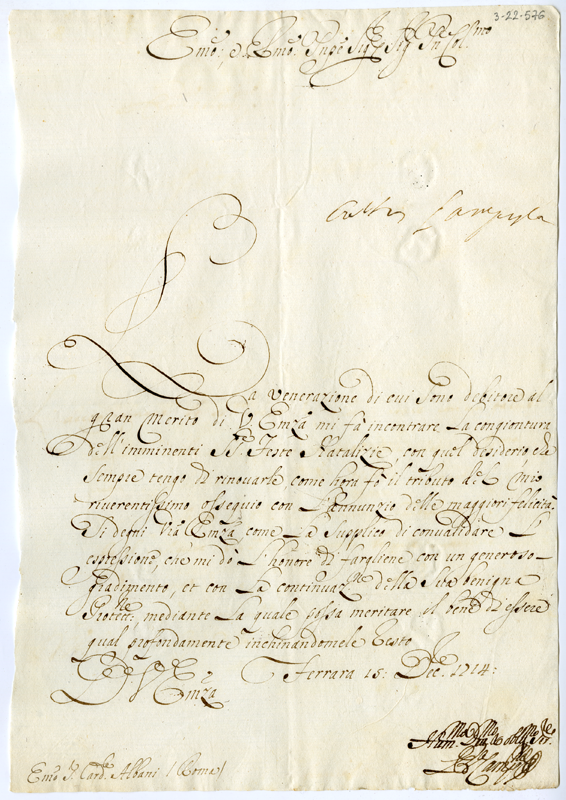 3-22-576
Emo: e Rmo: Sig.
La venerazione di cui sono debitore al
gran merito di V. Emza mi fà incontrare la congiontura
dell'imminenti SS. Feste Natalizie, con quel desiderio che
sempre tengo di rinovarle come hora fò il tributo del mio
riverentissimo ossequio con l'annunzio delle maggiori felicità.
Si degni Vra Emza, come la supplico di convalidare l'
espressione, che mi dò l'honore di fargliene con un generoso
gradimento, et con la continuaz.ne della sua benigna
Protec.ne: mediante la quale possa meritare il bene di essere
qual profondamente inchinandomele resto
D. V. Emza
Ferrara 15: Dec. 1714:
Hum.mo Div.mo Obl.mo Ser.
Emo S. Card. Albani (Roma)